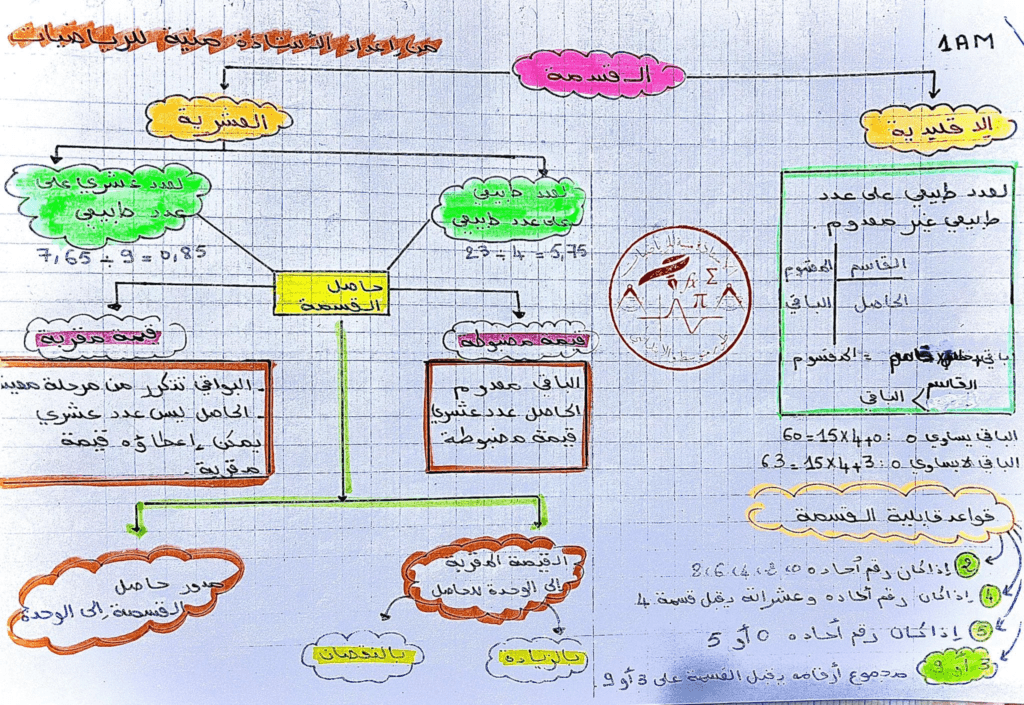 من إعداد الأستاذة منية للرياضيات
1AM
القسمة
الاقليدية
لعدد طبيعي على عدد
طبيعي غير معدوم.
المقسوم القاسم
الباقي الحاصل
المقسوم =
القاسم
الباقي
الباقي يساوي 0 : 60=15×4+0
الباقي لا يساوي 0 : 63=15×4+3
قواعد قابلية القسمة
2 إذا كان رقم آحاده 0، 2، 4، 6، 8
4 إذا كان رقم آحاده وعشراته يقبل قسمة 4
5 إذا كان رقم آحاده 0 أو 5
3 أو 9 مجموع أرقامه يقبل القسمة على 3 أو 9
العشرية
لعدد طبيعي
على عدد طبيعي
23 ÷ 4 = 5,75
لعدد عشري على
عدد طبيعي
7,65 ÷ 9 = 0,85
حاصل
القسمة
قيمة مضبوطة
الباقي معدوم
الحاصل عدد عشري
قيمة مضبوطة
قيمة مقربة
- البواقي تتكرر من مرحلة
- الحاصل ليس عدد عشري
يمكن إعطاؤه قيمة
مقربة.
القيمة المقربة
إلى الوحدة للحاصل
بالزيادة
بالنقصان
مدور حاصل
القسمة إلى الوحدة
fx Σ
π